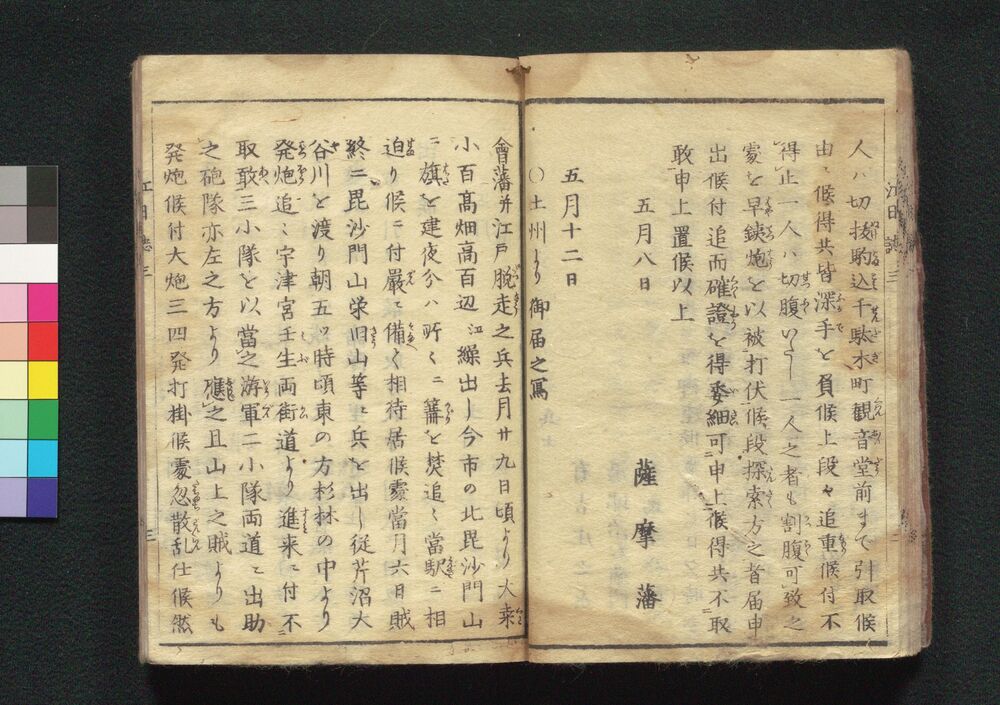 人ハ切抜駒込千駄木町観音堂前まで引取候
由ニ候得共皆深手を負候上段々追重候付不
得止一人ハ切腹いたし一人之者も割腹可致之
處を早銕炮を以被打伏候段探索方之者届申
出候付追而確證を得委細可申上候得共不取
敢申上置候以上
五月八日
薩摩藩
五月十二日
〇土州より御届之寫
會藩并江戸脱走之兵去月廿九日頃より大桒
小百髙畑高百辺江繰出し今市の北毘沙門山
ニ旗を建夜分ハ所々ニ篝を焚追々當駅ニ相
迫り候ニ付嚴ニ備へ相待居候處當月六日賊
終ニ毘沙門山栄旧山等ニ兵を出し従芹沼大
谷川を渡り朝五ツ時頃東の方杉林の中より
発炮追々宇津宮壬生両街道より進来ニ付不
取敢三小隊を以當之游軍二小隊両道ニ出助
之砲隊亦左之方より應之且山上之賊よりも
発炮候付大炮三四発打掛候處忽散乱仕候然
江日誌三
三